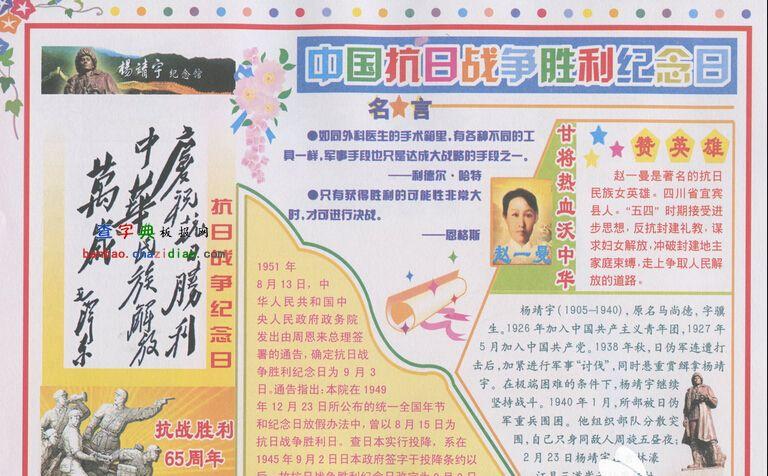 杨靖宇 纪念馆
中国抗日战争胜利纪念日
名言
●如同外科医生的手术箱里,有各种不同的工
具一样,军事手段也只是达成大战略的手段之一。
——利德尔·哈特
●只有获得胜利的可能性非常大
时,才可进行决战。
——恩格斯
庆祝抗日胜利
中华民族解放
万岁
毛泽东
查字典板报网
banbao.chazidian.com
抗日战争纪念日
抗战胜利
65周年
1951 年
8 月 13 日,中
华人民共和国中
央人民政府政务院
发出由周恩来总理签
署的通告,确定抗日战
争胜利纪念日为 9 月 3
日。通告指出:本院在 1949
年 12 月 23 日所公布的统一全国年节
和纪念日放假办法中,曾以 8 月 15 日为
抗日战争胜利日。查日本实行投降,系在
1945 年 9 月 2 日日本政府签字于投降条约以
甘将热血沃中华
赵一曼
赞英雄
赵一曼是著名的抗日
民族女英雄。四川省宜宾
县人。“五四”时期接受进
步思想,反抗封建礼教,谋
求妇女解放,冲破封建地主
家庭束缚,走上争取人民解
放的道路。
杨靖宇(1905—1940),原名马尚德,字骥
生。1926 年加入中国共产主义青年团,1927 年
5 月加入中国共产党。1938 年秋,日伪军连遭打
击后,加紧进行军事“讨伐”,同时悬重赏缉拿杨靖
宇。在极端困难的条件下,杨靖宇继续
坚持战斗。1940 年 1 月,所部被日伪
军重兵围困。他组织部队分散突
围,自己只身同敌人周旋五昼夜;
2 月 23 日杨靖宇
林濛